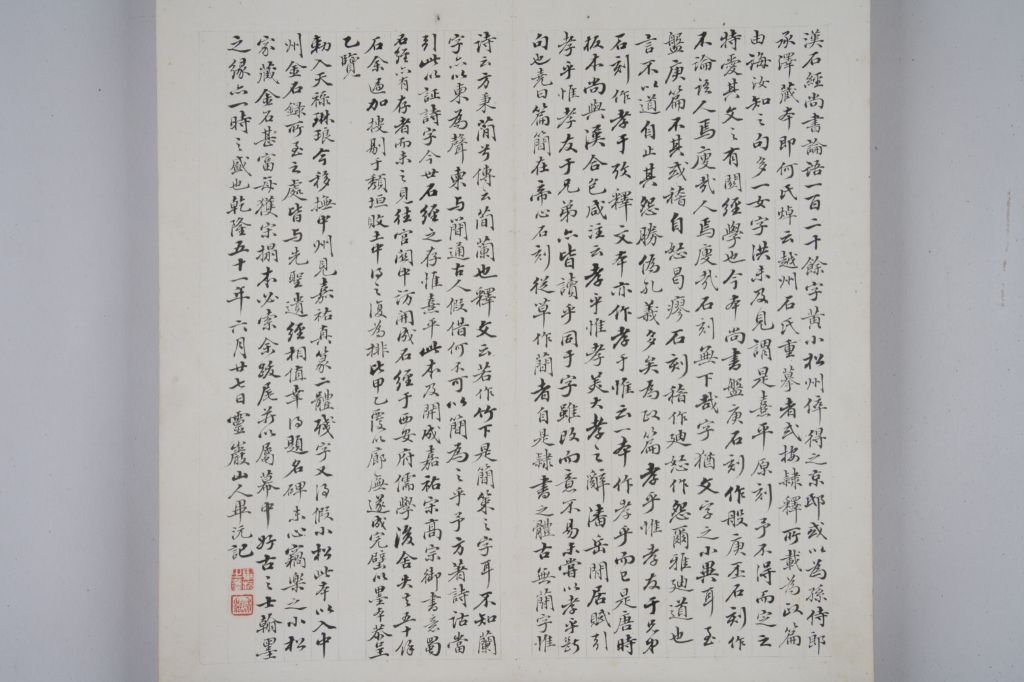 漢石經尚書論語一百二十餘字黃小松州倅得之京邸或以為孫侍郎
承澤藏本即何氏焯云越州石氏重摹者或據隸釋所載為政篇
由誨汝知之句多一女字洪未及見謂是熹平原刻予不得而定之
特愛其文之有關經學也今本尚書盤庚石刻作般庚丕石刻作
不論語人焉廋哉人焉廋哉石刻無下哉字猶文字之小異耳至
盤庚篇不其或稽自怒曷瘳石刻稽作迪怒作怨爾雅迪道也
言不以道自止其怨勝偽孔義多矣為政篇孝乎惟孝友于兄弟
石刻作孝于攷釋文本亦作孝于惟云一本作孝乎而已是唐時
板本尚與漢合包咸注云孝乎惟孝美大孝之辭潘岳閒居賦引
孝乎惟孝友于兄弟亦皆讀乎同于字雖改而意不易未嘗以孝乎斷
句也堯曰篇簡在帝心石刻從草作蕳者自是隸書之體古無蕳字惟
詩云方秉蕳兮傳云蕳蘭也釋文云若作竹下是簡策之字耳不知蘭
字亦以柬為聲柬與閒通古人假借何不可以簡為之乎予方著詩詁當
引此以証詩字今世石經之存惟熹平此本及開成嘉祐宋高宗御書意蜀
石經富有存者而未之見往官關中訪開成石經于西安府儒學後舍失之五十餘
石余逎加搜剔于頹垣敗土中得之復為排比甲乙覆以廊廡遂成完璧以墨本恭呈
乙覽
勅入天祿琳琅今移撫中州見嘉祐真篆二體殘字又得假小松此本以入中
州金石錄所至之處皆與先聖遺經相值幸得題名碑末心竊樂之小松
家藏金石甚富每獲宋搨本必索余跋尾并以屬幕中好古之士翰墨
之緣亦一時之盛也乾隆五十一年六月廿七日靈巖山人畢沅記